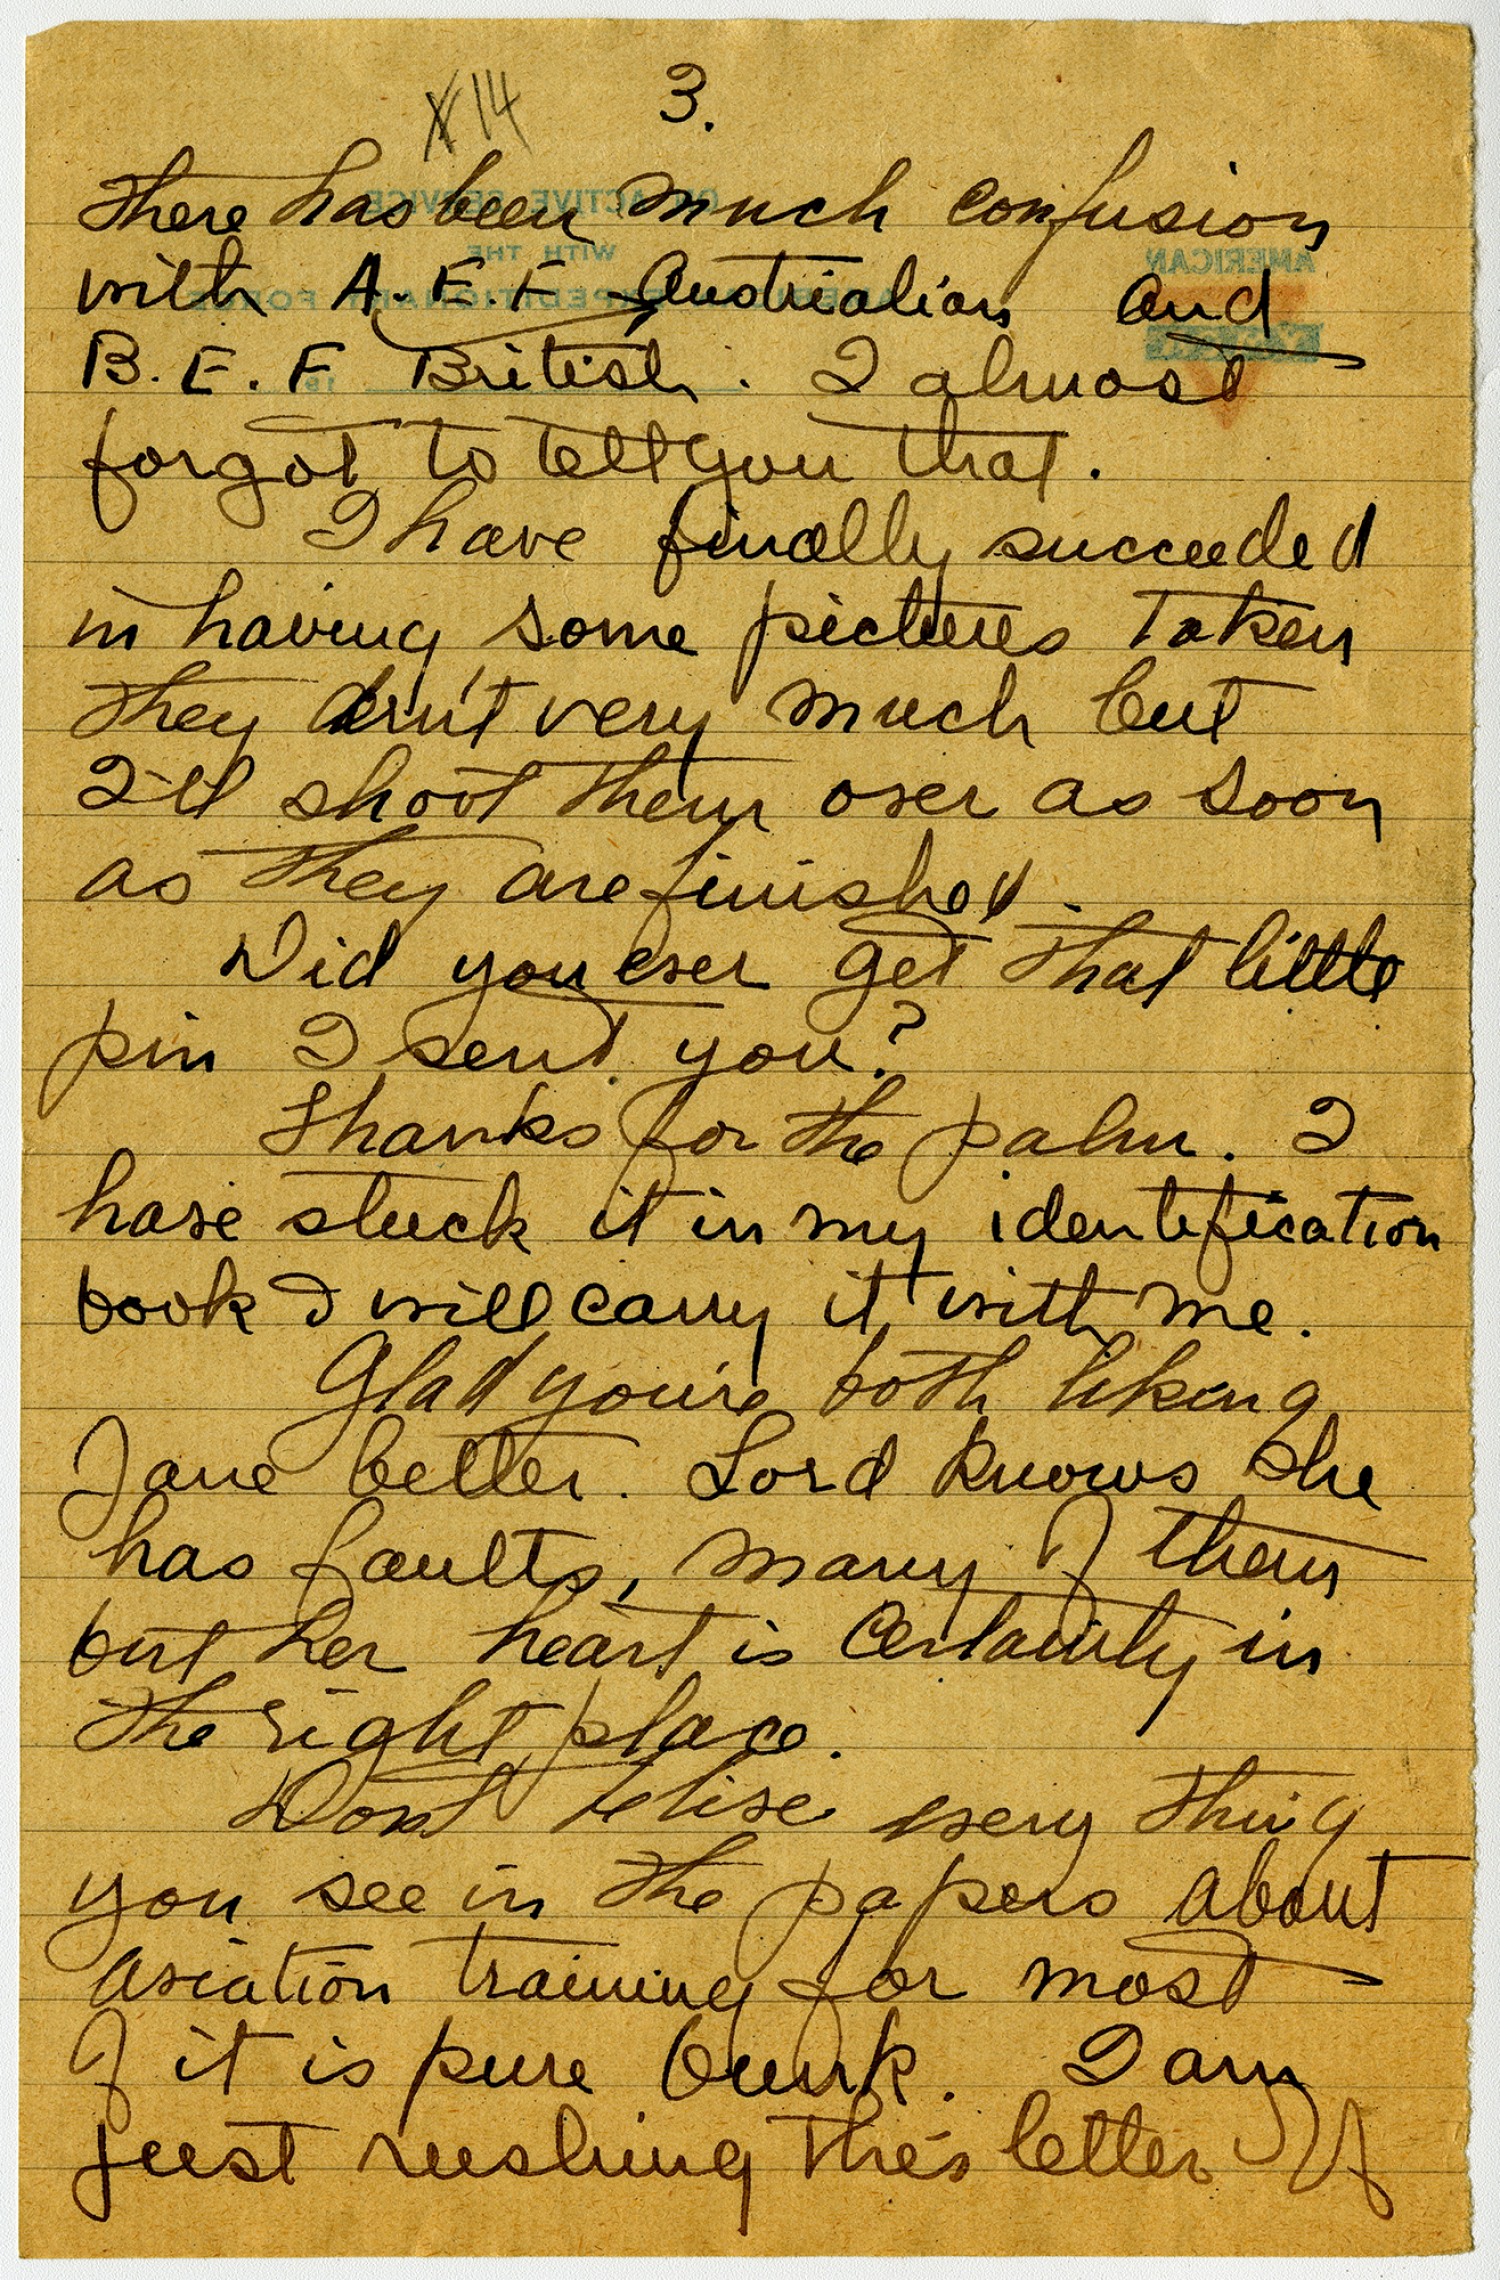 X14 3.
there has been much confusion
with A.E.F. Australian and
B.E.F British. I almost
forgot to tell you that.
I have finally succeeded
in having some pictures taken
they ain't very much but
I'll shoot them over as soon
as they are finished.
Did you ever get that little
pin I sent you?
Thanks for the palm. I
have stuck it in my identification
book I will carry it with me.
Glad you're both liking
Jane better. Lord knows she
has faults, many of them
but her heart is certainly in
the right place.
Dont belive every thing
you see in the papers about
aviation training for most
of it is pure bunk. I am
just rushing this letter off
ON ACTIVE SERVICE
WITH THE
AMERICAN EXPEDITIONARY FORCE
AMERICAN
191